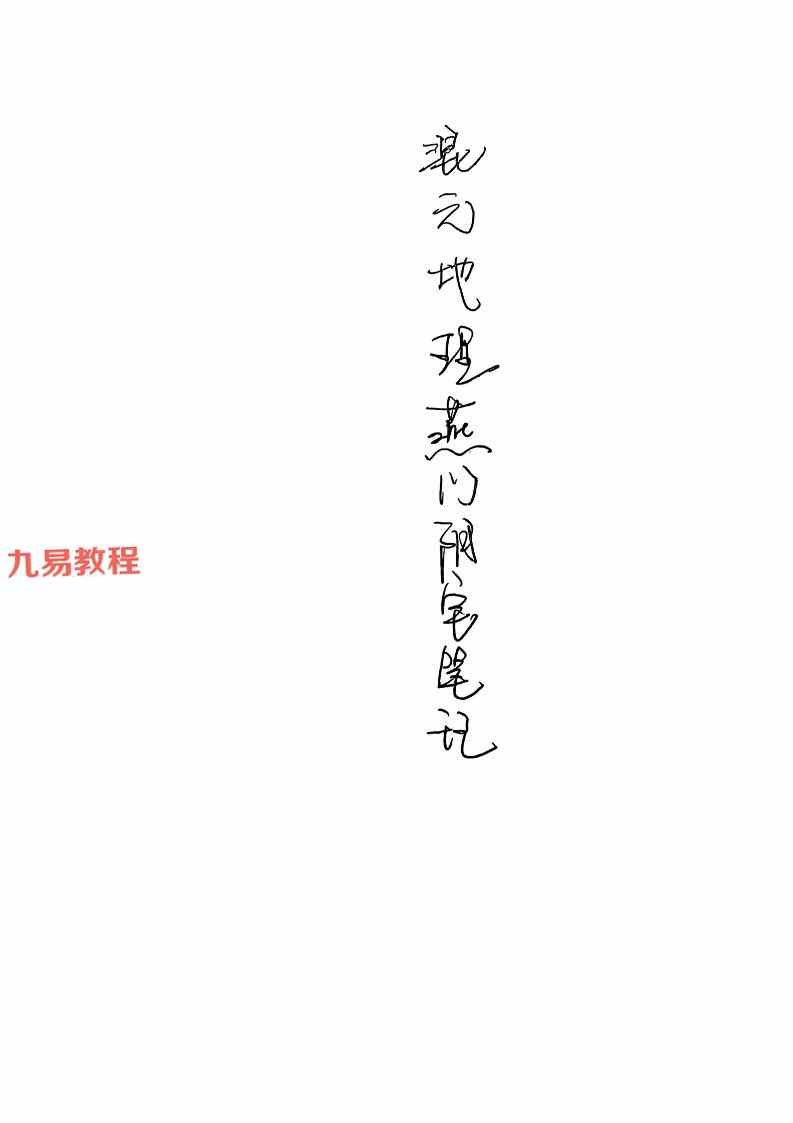 混元地理燕门阴宅笔记
九易教程